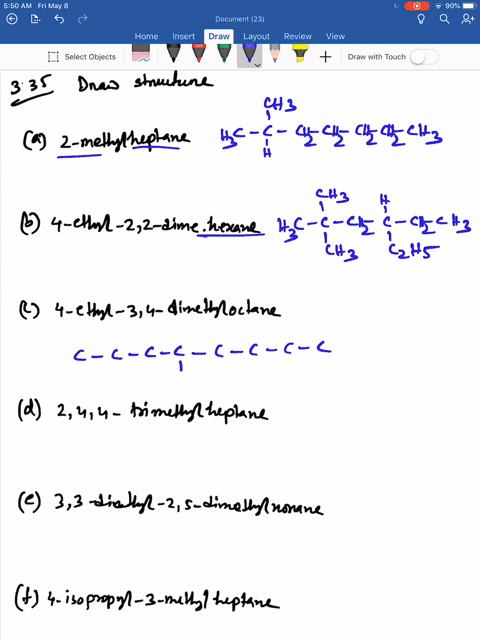 5:50 AM Fri May 8
90%
Document (23)
Home Insert Draw Layout Review View
Select Objects
Draw with Touch
3.35 Draw structure
CH3
(a) 2-methylheptane H3C - C - CH2 CH2 CH2 CH2 CH3
H
CH3 H
(b) 4-ethyl-2,2-dime.hexane H3C - C - CH2 - C - CH2 - CH3
CH3 C2H5
(c) 4-ethyl-3,4-dimethyloctane
C - C - C - C - C - C - C - C
(d) 2,4,4-trimethylheptane
(e) 3,3-diethyl-2,5-dimethylnonane
(f) 4-isopropyl-3-methylheptane